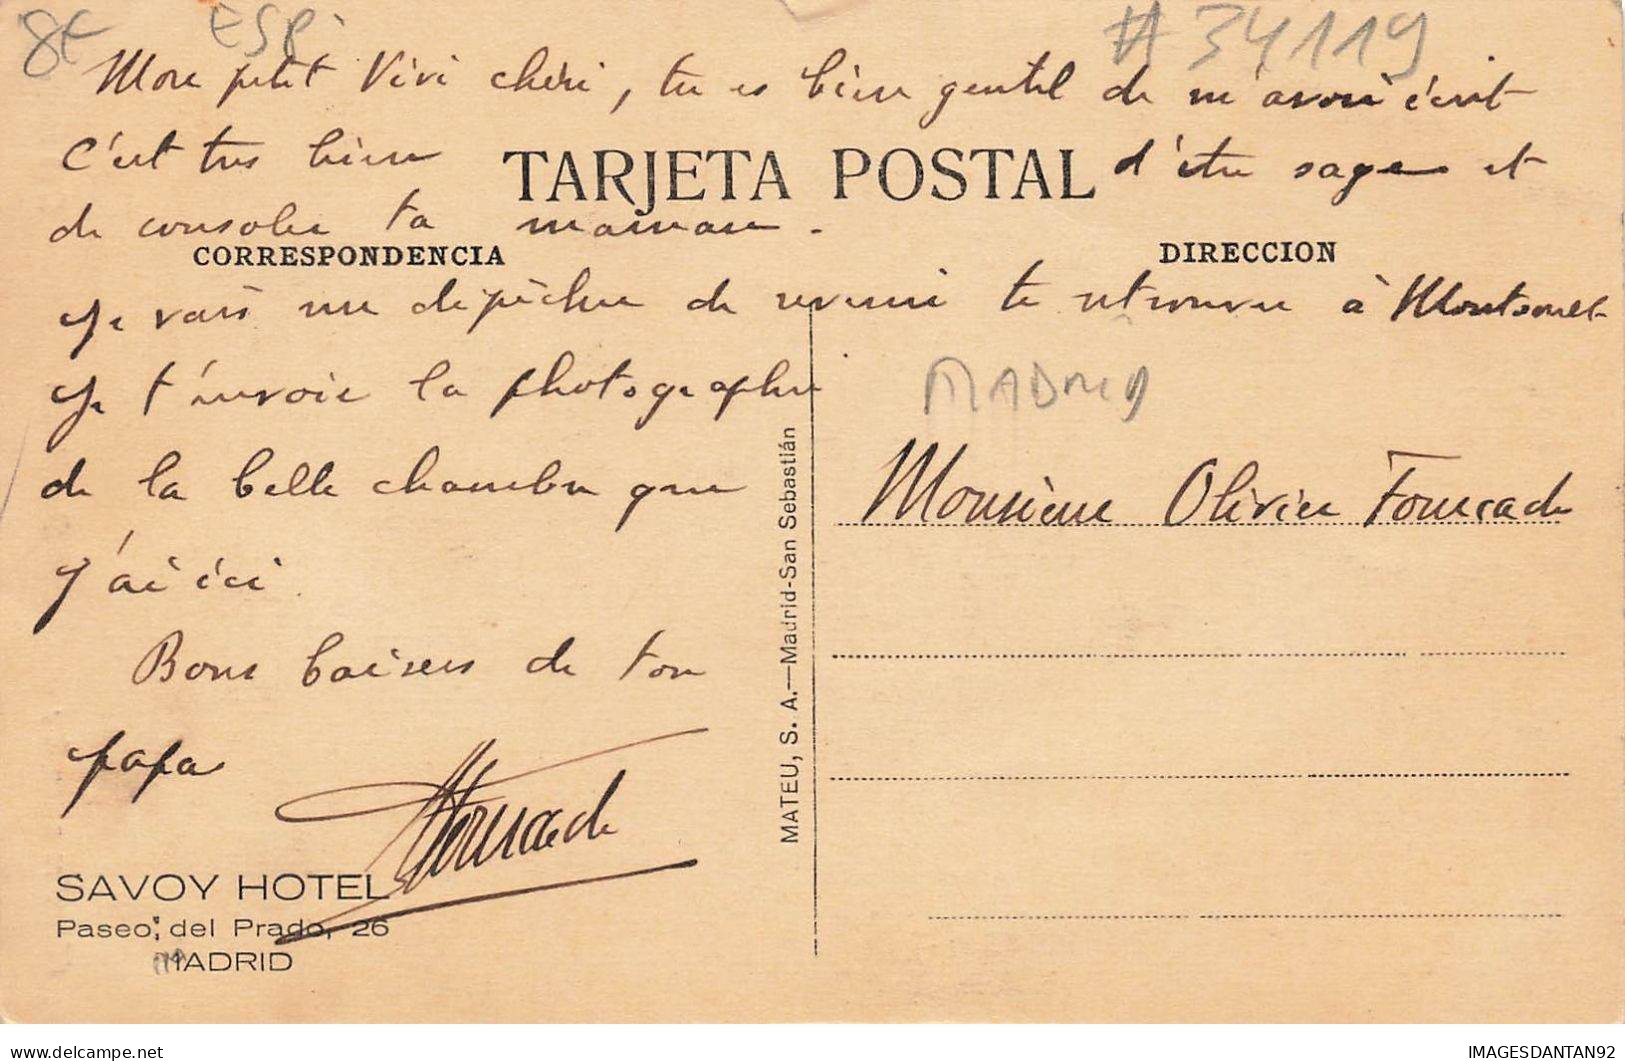 8€ ESP #34119
Mon petit Vivi chéri, tu es bien gentil de m'avoir écrit
C'est très bien d'être sage et
TARJETA POSTAL
de consoler ta maman.
CORRESPONDENCIA
DIRECCION
Je vais me dépêcher de revenir te retrouver à
Je t'envoie la photographie
MADRID
de la belle chambre que
Monsieur Olivier Fourcade
j'ai ici
Bons baisers de ton
papa
Fourcade
SAVOY HOTEL
Paseo, del Prado, 26
MADRID
MATEU, S. A.—Madrid-San Sebastián
delcampe.net
IMAGESDANTAN92